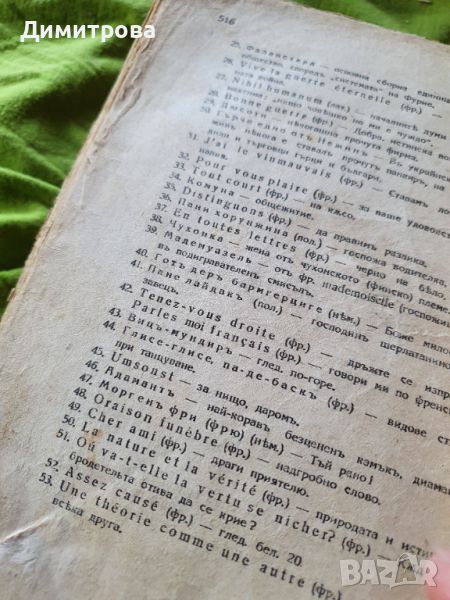 Димитрова
516
25. Фаланстера — основна сборна единица
общество според „системата“ на Фурие.
26. Vive la guerre éternelle (фр.)
ната война.
27. Nihil humanum (лат.) — начални думи
28. Bonne guerre (фр.) — Добра, истинска
31. J'ai le vin mauvais (фр.) — Ставам
32. Pour vous plaire (фр.) — за ваше удоволст
33. Tout court (фр.) — на късо.
34. Комуна — общежитие.
35. Distinguons (фр.) — да правим разлика.
36. Пани хорунжина (пол.) — госпожа водителя,
37. En toutes lettres (фр.) — черно на бяло.
38. Чухонка — жена от чухонското (финско) племе
39. Мадемуазель — от фр. mademoiselle (госпожи
в подигравателен смисъл.
40. Готъ деръ бармгерциге (нѣм.) — Боже мило
41. Пане лайдакъ (пол.) — господинъ шерлатани
завецъ.
42. Tenez-vous droite (фр.) — дръжте се изпр
Parlez moi français (фр.) — говори ми по френс
43. Вицъ-мундиръ — глед. по-горе.
44. Глисе-глисе, па-де-баскъ (фр.) — видове ст
при танцуване.
45. Umsonst — за нищо, даромъ.
46. Адамантъ — най-коравъ безцененъ камъкъ, диаман
47. Моргенъ фри (фрю) (нѣм.) — Тъй рано!
48. Oraison funèbre (фр.) — надгробно слово.
49. Cher ami (фр.) — драги приятелю.
50. La nature et la vérité (фр.) — природата и исти
51. Où va-t-elle la vertu se nicher? (фр.) — Каде
бродетельта отива да се крие?
52. Assez causé (фр.) — глед. бел. 20.
53. Une théorie comme une autre (фр.)
всѣка друга.
BAZAR